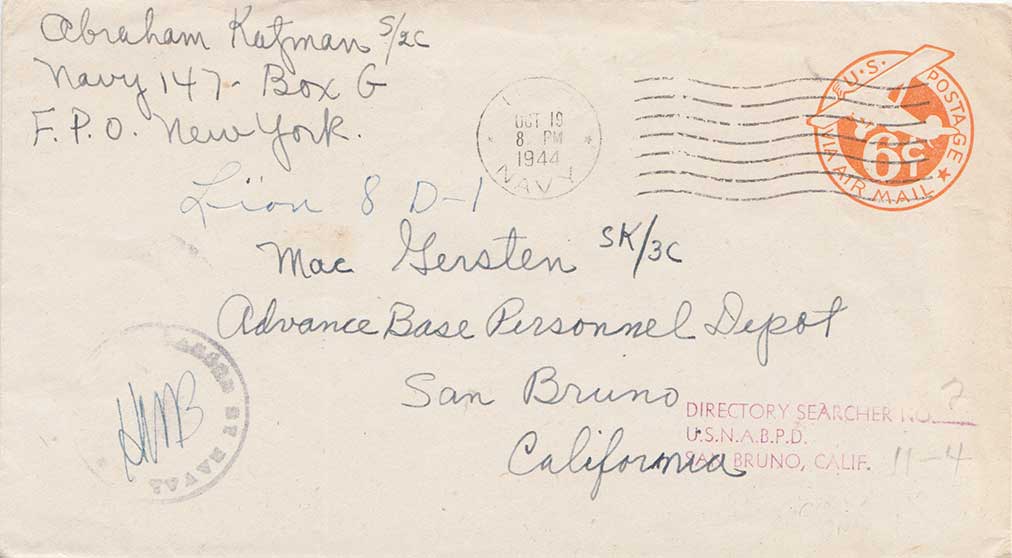 Abraham Katzman S/2C
Navy 147 - Box G
F.P.O. New York.
OCT 19
8 PM
1944
NAVY
U.S. POSTAGE
6¢
VIA AIR MAIL
Lion 8 D-1
Mac Gersten SK/3C
Advance Base Personnel Depot
San Bruno
California
DIRECTORY SEARCHER NO. 2
U.S.N.A.B.P.D.
SAN BRUNO, CALIF. 11-4
PASSED BY NAVAL